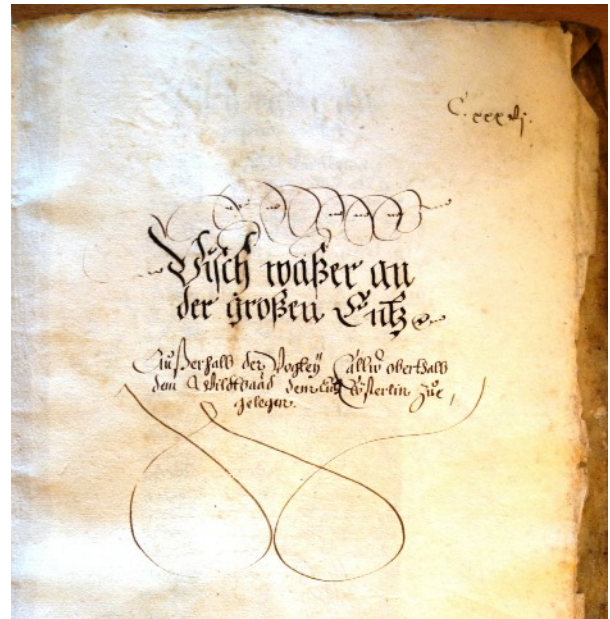 C.xxxvj.
Visch waßer an
der großen Entz
Außerhalb der Vogtey Callw oberthalb
dem Wildtbaad dem Clösterlin zue,
gelegen.